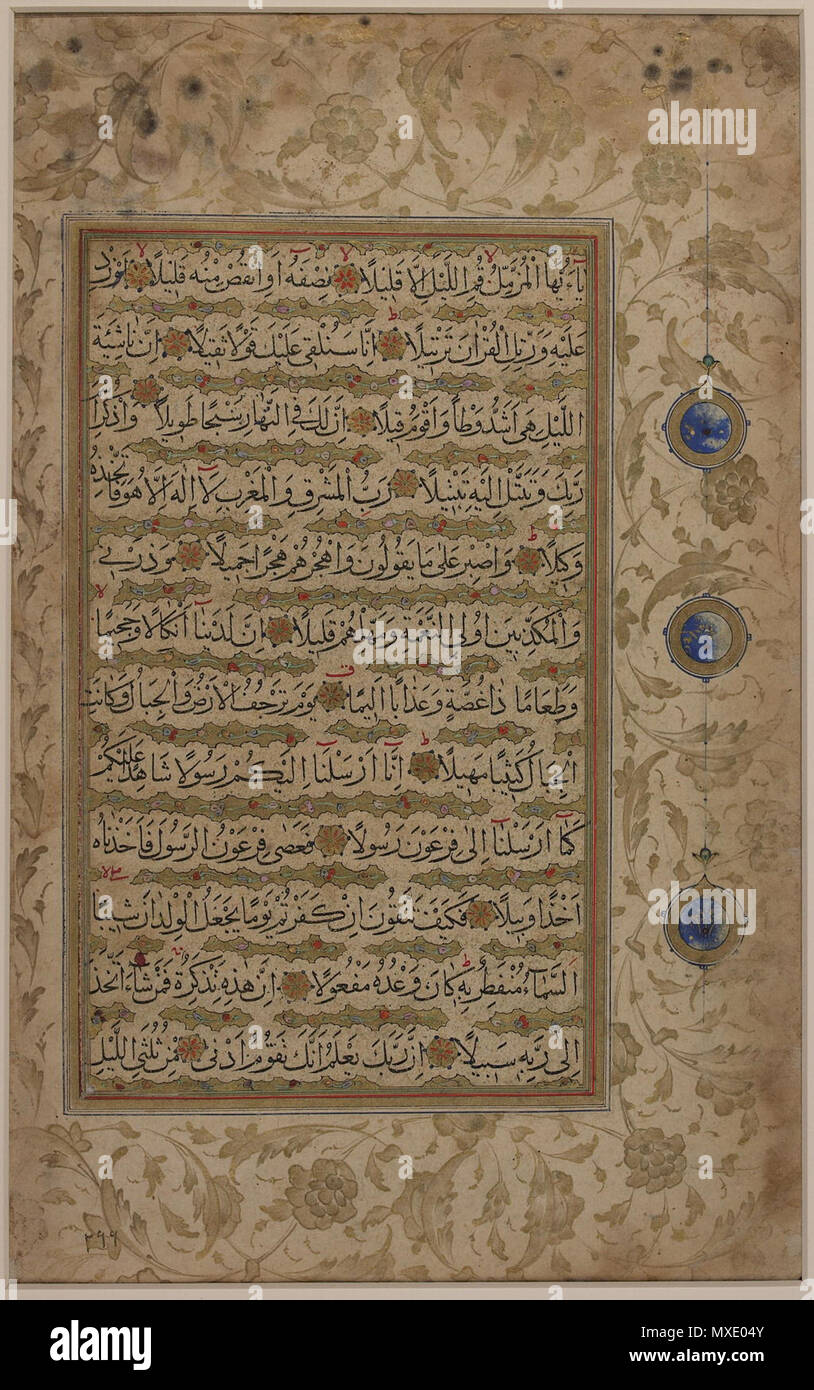 يَا أَيُّهَا الْمُزَّمِّلُ قُمِ اللَّيْلَ إِلَّا قَلِيلًا نِصْفَهُ أَوِ انْقُصْ مِنْهُ قَلِيلًا أَوْ زِدْ
عَلَيْهِ وَرَتِّلِ الْقُرْاٰنَ تَرْتِيلًا اِنَّا سَنُلْقِي عَلَيْكَ قَوْلًا ثَقِيلًا اِنَّ نَاشِئَةَ
اللَّيْلِ هِيَ اَشَدُّ وَطْأً وَاَقْوَمُ قِيلًا اِنَّ لَكَ فِي النَّهَارِ سَبْحًا طَوِيلًا وَاذْكُرِ اسْمَ
رَبِّكَ وَتَبَتَّلْ اِلَيْهِ تَبْتِيلًا رَبُّ الْمَشْرِقِ وَالْمَغْرِبِ لَا اِلٰهَ اِلَّا هُوَ فَاتَّخِذْهُ
وَكِيلًا وَاصْبِرْ عَلٰى مَا يَقُولُونَ وَاهْجُرْهُمْ هَجْرًا جَمِيلًا وَذَرْنِي
وَالْمُكَذِّبِينَ اُولِي النَّعْمَةِ وَمَهِّلْهُمْ قَلِيلًا اِنَّ لَدَيْنَا اَنْكَالًا وَجَحِيمًا
وَطَعَامًا ذَا غُصَّةٍ وَعَذَابًا اَلِيمًا يَوْمَ تَرْجُفُ الْاَرْضُ وَالْجِبَالُ وَكَانَتِ
الْجِبَالُ كَثِيبًا مَهِيلًا اِنَّا اَرْسَلْنَا اِلَيْكُمْ رَسُولًا شَاهِدًا عَلَيْكُمْ
كَمَا اَرْسَلْنَا اِلٰى فِرْعَوْنَ رَسُولًا فَعَصٰى فِرْعَوْنُ الرَّسُولَ فَاَخَذْنَاهُ
اَخْذًا وَبِيلًا فَكَيْفَ تَتَّقُونَ اِنْ كَفَرْتُمْ يَوْمًا يَجْعَلُ الْوِلْدَانَ شِيبًا
اَلسَّمَاءُ مُنْفَطِرٌ بِهِ كَانَ وَعْدُهُ مَفْعُولًا اِنَّ هٰذِهِ تَذْكِرَةٌ فَمَنْ شَاءَ اتَّخَذَ
اِلٰى رَبِّهِ سَبِيلًا اِنَّ رَبَّكَ يَعْلَمُ اَنَّكَ تَقُومُ اَدْنٰى مِنْ ثُلُثَيِ اللَّيْلِ
٢٩٩
alamy
alamy
a
alamy
alamy
Image ID: MXE04Y
www.alamy.com